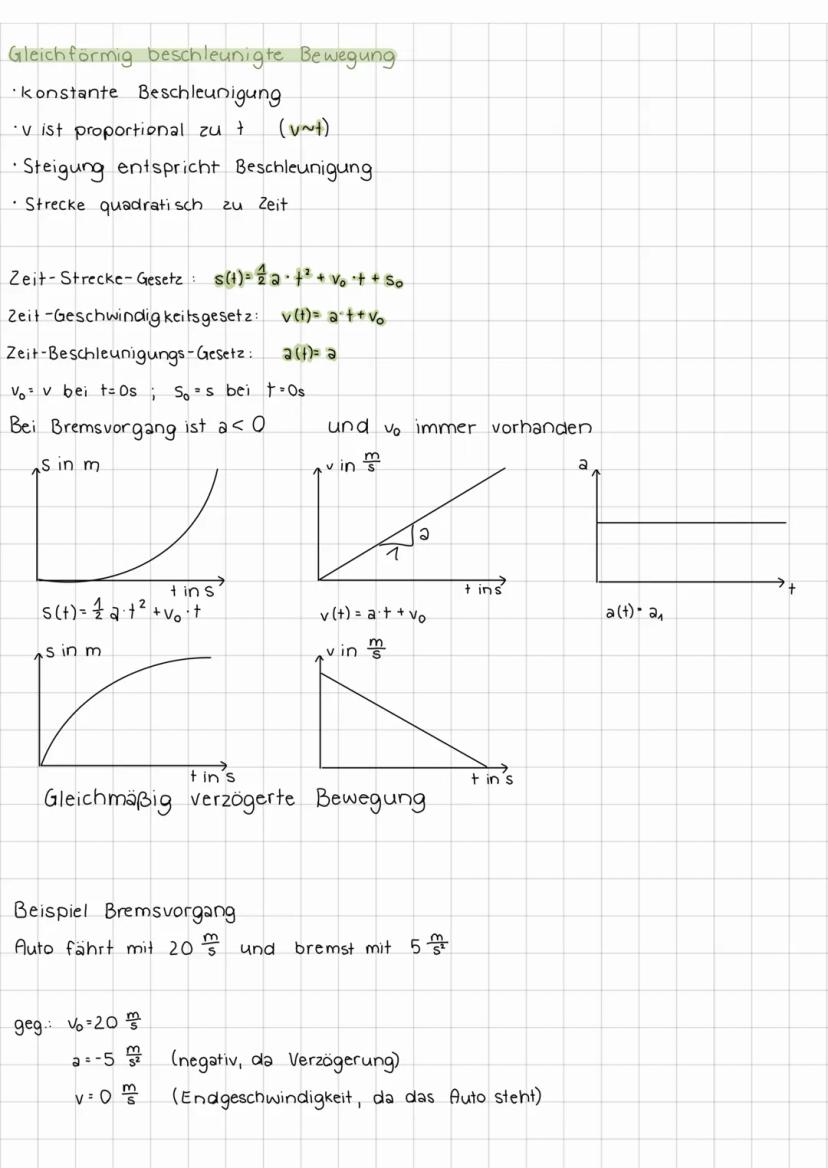 Gleichförmig beschleunigte Bewegung
· konstante Beschleunigung
· v ist proportional zu t (v~t)
· Steigung entspricht Beschleunigung
· Strecke quadratisch zu Zeit
Zeit-Strecke-Gesetz: s(t)=½a·t²+v₀·t+s₀
Zeit-Geschwindigkeitsgesetz: v(t)= a·t+v₀
Zeit-Beschleunigungs-Gesetz: a(t)= a
v₀= v bei t=0s ; s₀=s bei t=0s
Bei Bremsvorgang ist a<0 und v₀ immer vorhanden
s in m v in m/s a
a
1
t in s t in s t
s(t)=½a·t²+v₀·t v(t)=a·t+v₀ a(t)=a₁
s in m v in m/s
t in s t in s
Gleichmäßig verzögerte Bewegung
Beispiel Bremsvorgang
Auto fährt mit 20 m/s und bremst mit 5 m/s²
geg.: v₀=20 m/s
a=-5 m/s² (negativ, da Verzögerung)
v=0 m/s (Endgeschwindigkeit, da das Auto steht)